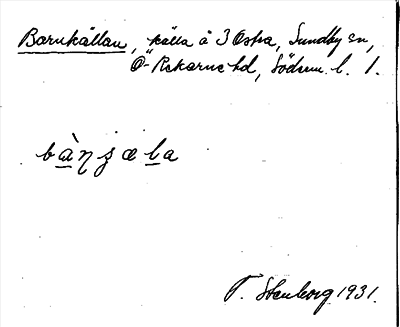 Barnkällan, källa å 3 Östra, Sundby sn,
Ö-Rekarne hd, Söderm. l. 1.
bàŋʂæla
T. Stenborg 1931.